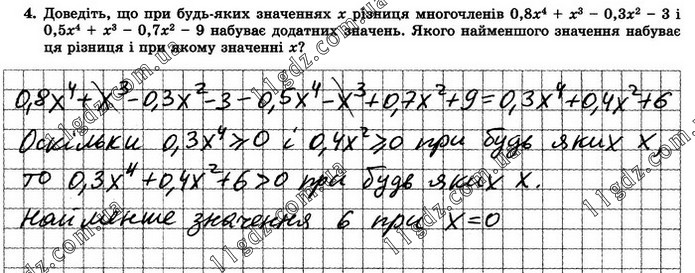 4. Доведіть, що при будь-яких значеннях x різниця многочленів 0,8x⁴ + x³ – 0,3x² – 3 і
0,5x⁴ + x³ – 0,7x² – 9 набуває додатних значень. Якого найменшого значення набуває
ця різниця і при якому значенні x?
0,8x⁴+x³-0,3x²-3-0,5x⁴-x³+0,7x²+9=0,3x⁴+0,4x²+6
Оскільки 0,3x⁴≥0 і 0,4x²≥0 при будь яких x,
то 0,3x⁴+0,4x²+6>0 при будь яких x.
Найменше значення 6 при x=0
11gdz.com.ua
11gdz.com.ua
11gdz.com.ua
11gdz.com.ua